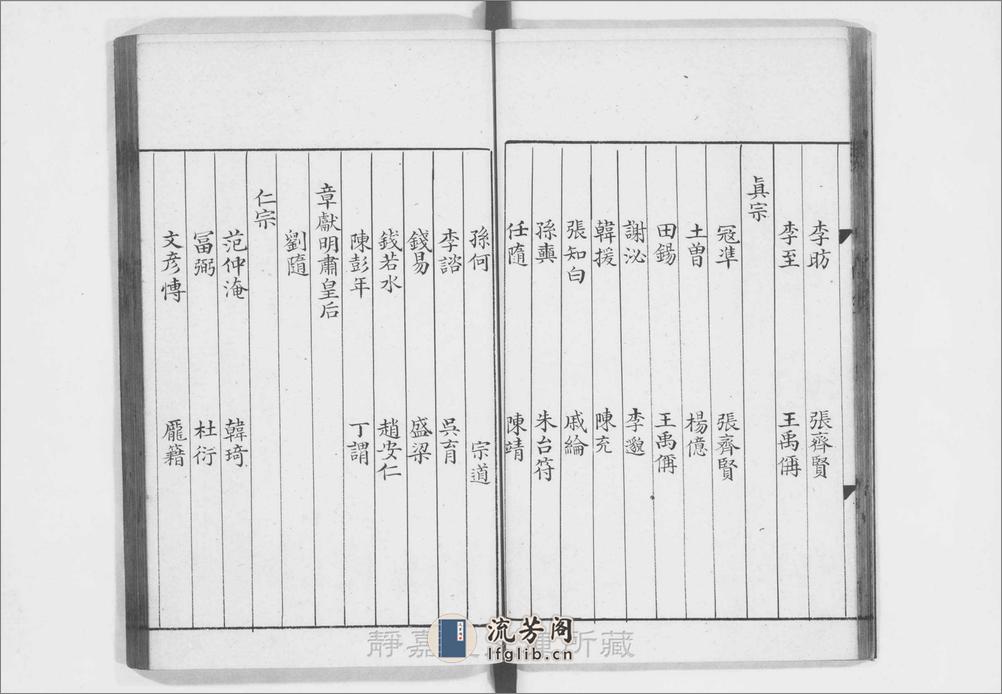 李昉 張齊賢
李至 王禹偁
眞宗
寇準 張齊賢
土曽 楊億
田錫 王禹偁
謝泌 李邈
韓援 陳充
張知白 戚綸
孫奭 朱台符
任隨 陳靖
孫何 宗道
李諮 吳育
錢易 盛梁
錢若水 趙安仁
陳彭年 丁謂
章獻明肅皇后
劉隨
仁宗
范仲淹 韓琦
冨弼 杜衍
文彦博 龎籍
靜嘉 所藏
流芳阁
lfglib.cn